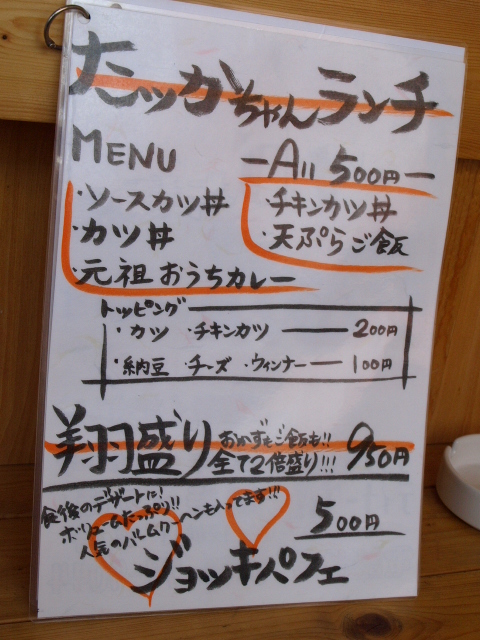 たッかちゃんランチ
MENU
-All 500円-
・ソースカツ丼
・カツ丼
・元祖おうちカレー
・チキンカツ丼
・天ぷらご飯
トッピング
・カツ ・チキンカツ —— 200円
・納豆 ・チーズ ・ウィンナー — 100円
翔盛り おかずもご飯も!! 950円
全て2倍盛り!!!
食後のデザートに!
ボリュームたっぷり!!
人気のバームクーヘンも入ってます!!!
500円
ジョッキパフェ